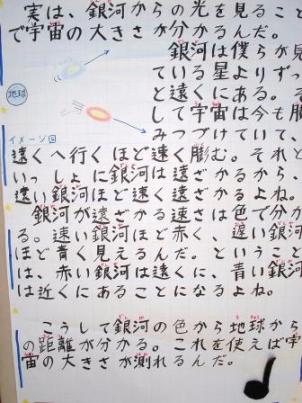 実は、銀河からの光を見ること
で宇宙の大きさが分かるんだ。
銀河は僕らが見
ている星よりずっ
と遠くにある。そ
して宇宙は今も膨
みつづけていて、
地球
イメージ図
遠くへ行くほど速く膨む。それと
いっしょに銀河は遠ざかるから、
遠い銀河ほど速く遠ざかるよね。
銀河が遠ざかる速さは色で分か
る。速い銀河ほど赤く、遅い銀河
ほど青く見えるんだ。ということ
は、赤い銀河は遠くに、青い銀河
は近くにあることになるよね。
こうして銀河の色から地球から
の距離が分かる。これを使えば宇
宙の大きさが測れるんだ。